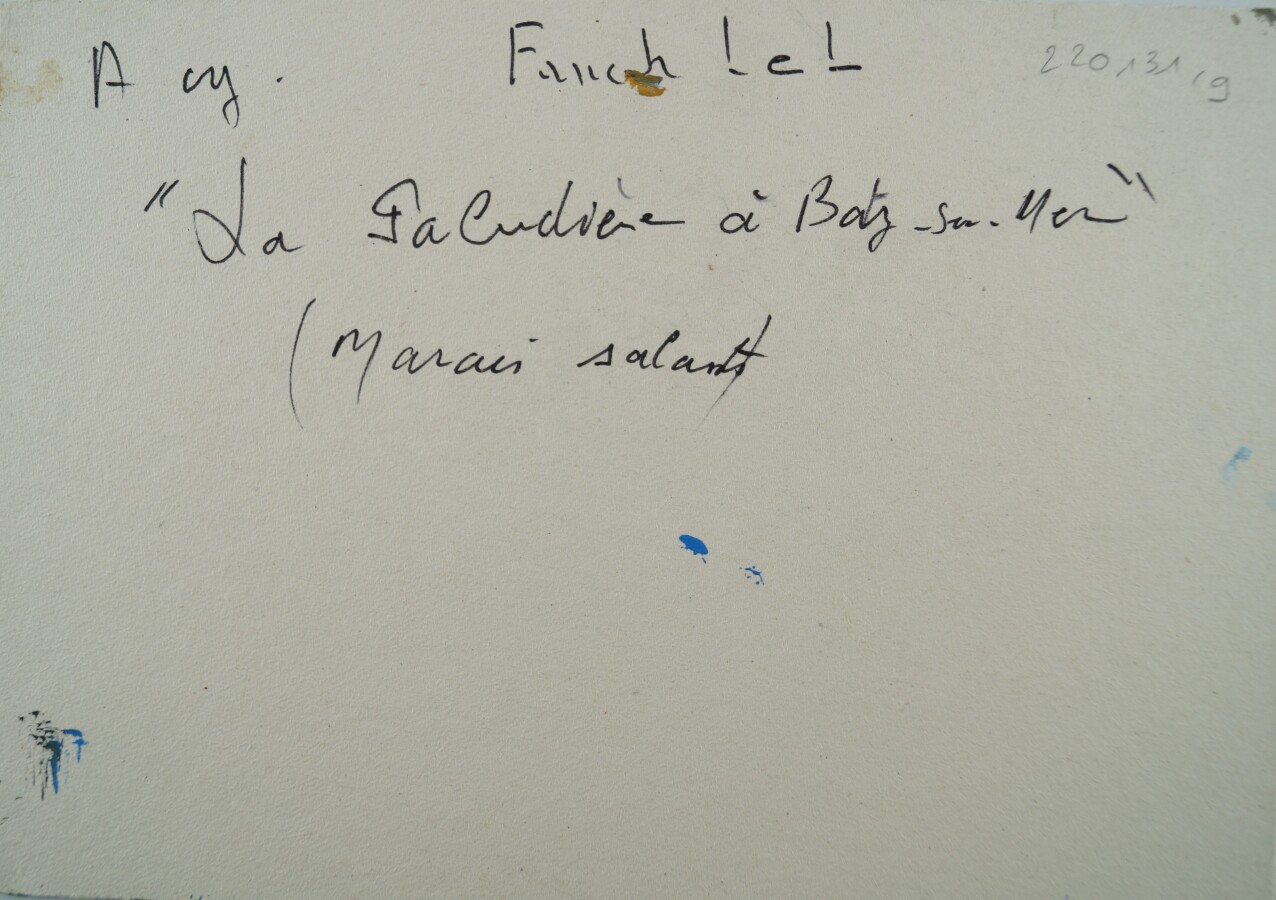 A cy. Fanch Lel 220131,9
"La Paludière à Batz-sur-Mer"
(Marais salant)